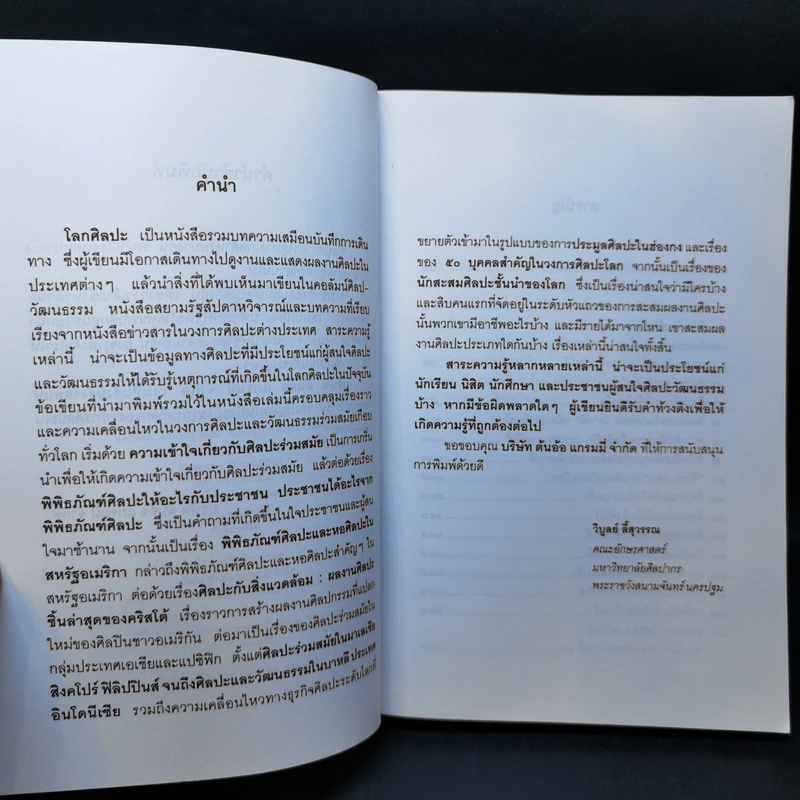 คำนำ
โลกศิลปะ เป็นหนังสือรวมบทความเสมือนบันทึกการเดิน
ทาง ซึ่งผู้เขียนมีโอกาสเดินทางไปดูงานและแสดงผลงานศิลปะใน
ประเทศต่างๆ แล้วนำสิ่งที่ได้พบเห็นมาเขียนในคอลัมน์ศิลป-
วัฒนธรรม หนังสือสยามรัฐสัปดาหวิจารณ์และบทความที่เรียบ
เรียงจากหนังสือข่าวสารในวงการศิลปะต่างประเทศ สาระความรู้
เหล่านี้ น่าจะเป็นข้อมูลทางศิลปะที่มีประโยชน์แก่ผู้สนใจศิลปะ
และวัฒนธรรมให้ได้รับรู้เหตุการณ์ที่เกิดขึ้นในโลกศิลปะในปัจจุบัน
ข้อเขียนที่นำมาพิมพ์รวมไว้ในหนังสือเล่มนี้ครอบคลุมเรื่องราว
และความเคลื่อนไหวในวงการศิลปะและวัฒนธรรมร่วมสมัยเกือบ
ทั่วโลก เริ่มด้วย ความเข้าใจเกี่ยวกับศิลปะร่วมสมัย เป็นการเกริ่น
นำเพื่อให้เกิดความเข้าใจเกี่ยวกับศิลปะร่วมสมัย แล้วต่อด้วยเรื่อง
พิพิธภัณฑ์ศิลปะให้อะไรกับประชาชน ประชาชนได้อะไรจาก
พิพิธภัณฑ์ศิลปะ ซึ่งเป็นคำถามที่เกิดขึ้นในใจประชาชนและผู้สน
ใจมาช้านาน จากนั้นเป็นเรื่อง พิพิธภัณฑ์ศิลปะและหอศิลปะใน
สหรัฐอเมริกา กล่าวถึงพิพิธภัณฑ์ศิลปะและหอศิลปะสำคัญๆ ใน
สหรัฐอเมริกา ต่อด้วยเรื่องศิลปะกับสิ่งแวดล้อม : ผลงานศิลปะ
ชิ้นล่าสุดของคริสโต้ เรื่องราวการสร้างผลงานศิลปกรรมที่แปลก
ใหม่ของศิลปินชาวอเมริกัน ต่อมาเป็นเรื่องของศิลปะร่วมสมัยใน
กลุ่มประเทศเอเชียและแปซิฟิก ตั้งแต่ศิลปะร่วมสมัยในมาเลเซีย
สิงคโปร์ ฟิลิปปินส์ จนถึงศิลปะและวัฒนธรรมในบาหลี ประเทศ
อินโดนีเซีย รวมถึงความเคลื่อนไหวทางธุรกิจศิลปะระดับโลกที่
ขยายตัวเข้ามาในรูปแบบของการประมูลศิลปะในฮ่องกง และเรื่อง
ของ ๕๐ บุคคลสำคัญในวงการศิลปะโลก จากนั้นเป็นเรื่องของ
นักสะสมศิลปะชั้นนำของโลก ซึ่งเป็นเรื่องน่าสนใจว่ามีใครบ้าง
และสิบคนแรกที่จัดอยู่ในระดับหัวแถวของการสะสมผลงานศิลปะ
นั้นพวกเขามีอาชีพอะไรบ้าง และมีรายได้มาจากไหน เขาสะสมผล
งานศิลปะประเภทใดกันบ้าง เรื่องเหล่านี้น่าสนใจทั้งสิ้น
สาระความรู้หลากหลายเหล่านี้ น่าจะเป็นประโยชน์แก่
นักเรียน นิสิต นักศึกษา และประชาชนผู้สนใจศิลปะวัฒนธรรม
บ้าง หากมีข้อผิดพลาดใดๆ ผู้เขียนยินดีรับคำท้วงติงเพื่อให้
เกิดความรู้ที่ถูกต้องต่อไป
ขอขอบคุณ บริษัท ต้นอ้อ แกรมมี่ จำกัด ที่ให้การสนับสนุน
การพิมพ์ด้วยดี
วิบูลย์ ลี้สุวรรณ
คณะอักษรศาสตร์
มหาวิทยาลัยศิลปากร
พระราชวังสนามจันทร์ นครปฐม